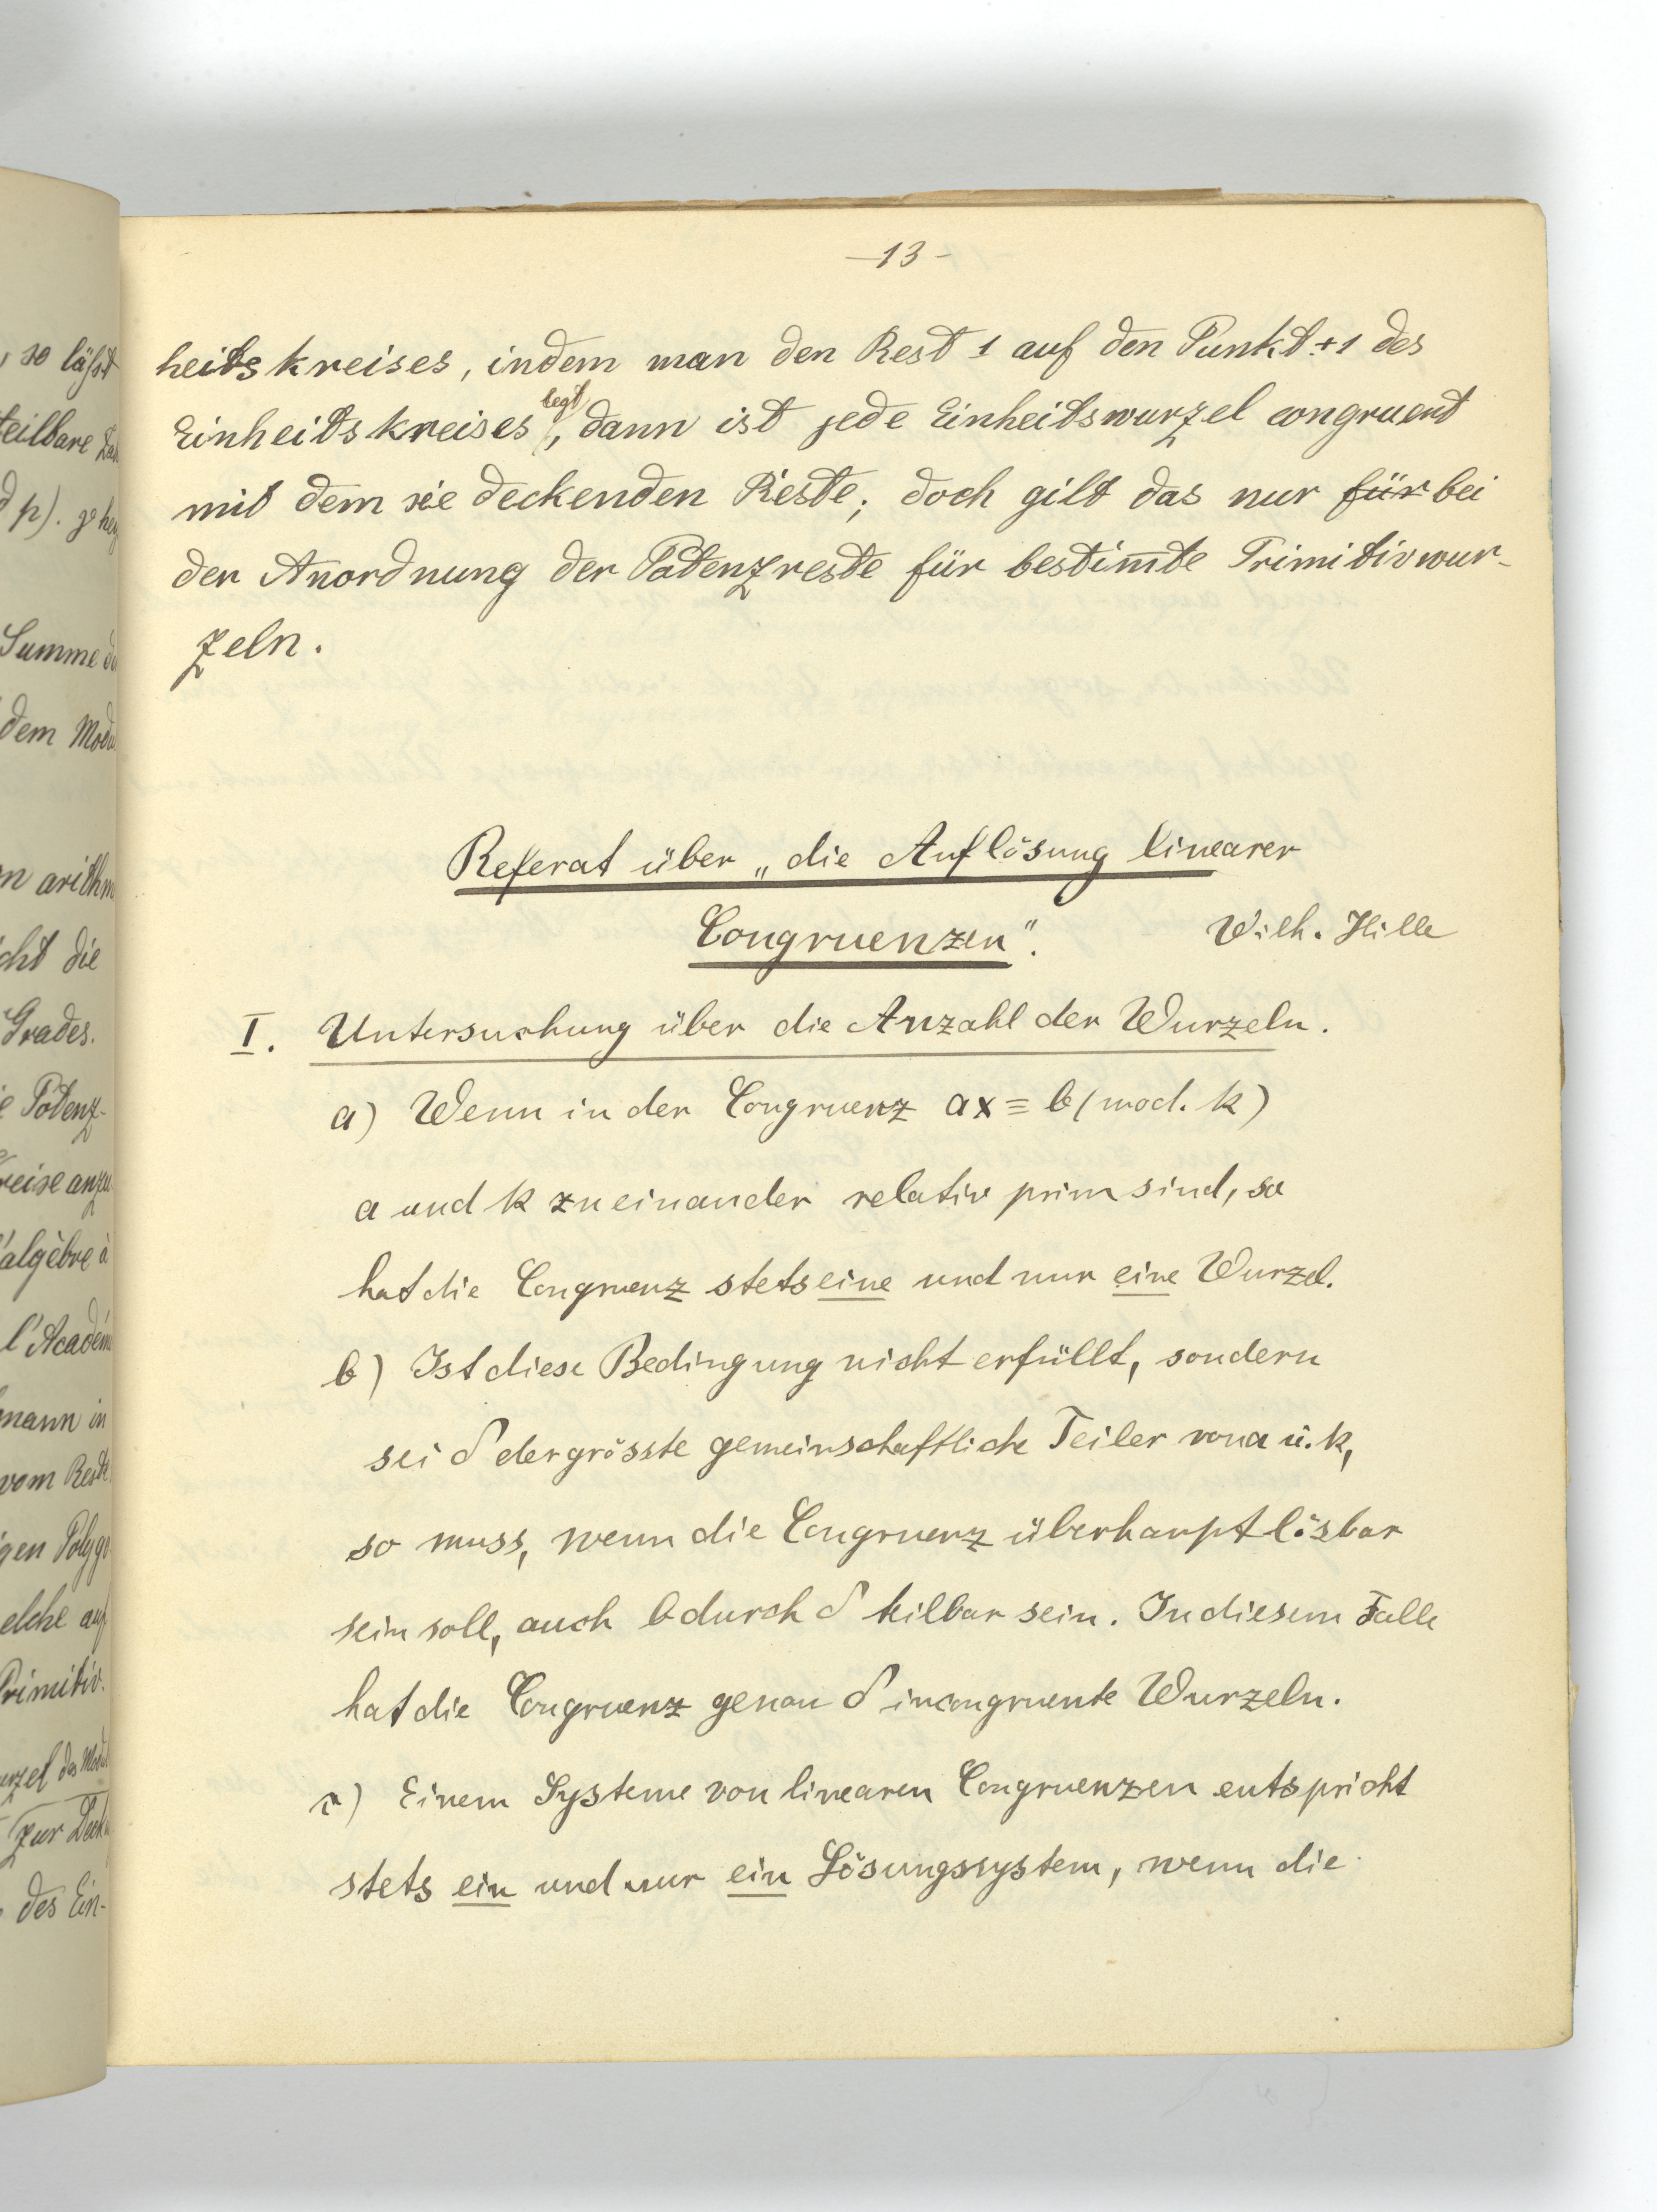 , so läßt
teilbare
d p).
Summe
dem Mod
n arithm
cht die
Grades.
e Potenz-
reise anzu
'algèbre à
l'Académ
mann in
vom Reste
gen Polygo
elche auf
Primitiv.
urzel des Mod
zur Deck
des Ein-
-13-
heitskreises, indem man den Rest 1 auf den Punkt +1 des
Einheitskreises legt, dann ist jede Einheitswurzel congruent
mit dem sie deckenden Reste; doch gilt das nur für bei
der Anordnung der Potenzreste für bestim̅te Primitivwur-
zeln.
Referat über „die Auflösung linearer
Congruenzen“. Wilh. Hille
I. Untersuchung über die Anzahl der Wurzeln.
a) Wenn in der Congruenz ax ≡ b (mod. k)
a und k zueinander relativ prim sind, so
hat die Congruenz stets eine und nur eine Wurzel.
b) Ist diese Bedingung nicht erfüllt, sondern
sei δ der grösste gemeinschaftliche Teiler von a u. k,
so muss, wenn die Congruenz überhaupt lösbar
sein soll, auch b durch δ teilbar sein. In diesem Falle
hat die Congruenz genau δ incongruente Wurzeln.
c) Einem Systeme von linearen Congruenzen entspricht
stets ein und nur ein Lösungssystem, wenn die